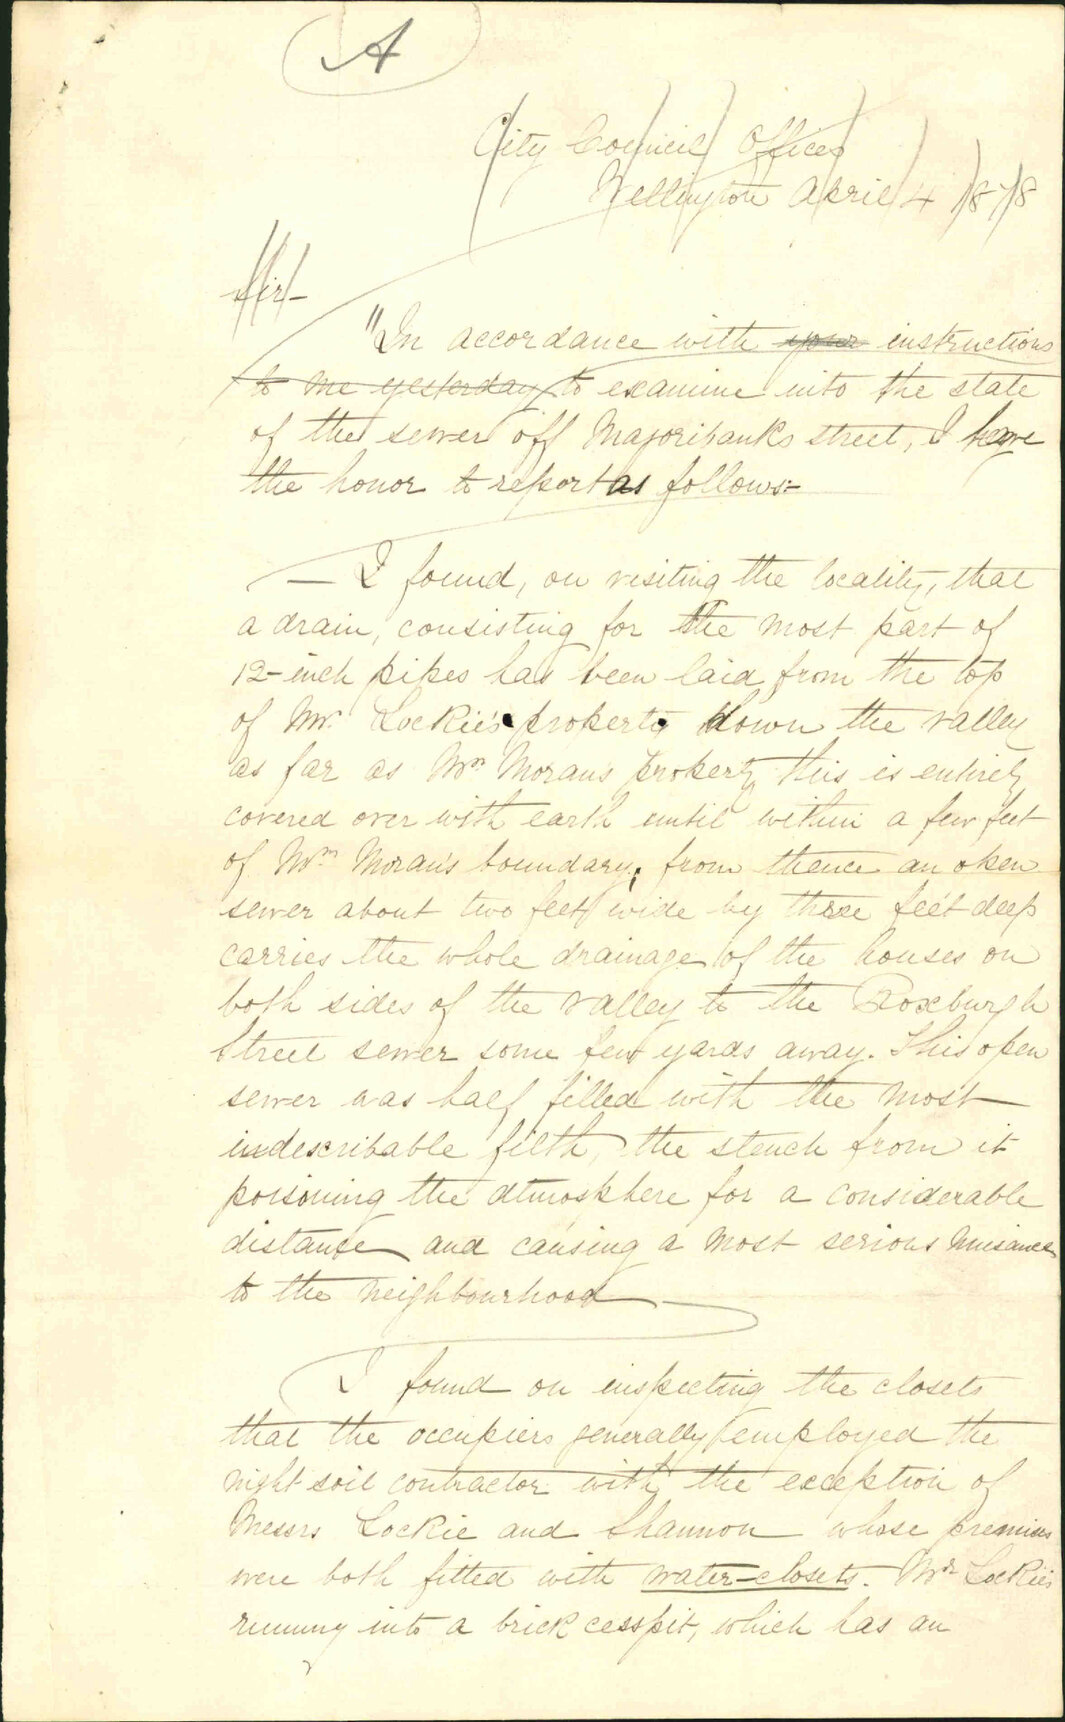 A
City Council Offices
Wellington April 4 1878
Sir -
"In accordance with your instructions
to me yesterday to examine into the state
of the sewer off Majoribanks street, I have
the honor to report as follows:-
- I found, on visiting the locality, that
a drain, consisting for the most part of
12-inch pipes has been laid from the top
of Mr. Lockie's property down the valley
as far as Mrs Moran's property this is entirely
covered over with earth until within a few feet
of Mrs Moran's boundary; from thence an open
sewer about two feet wide by three feet deep
carries the whole drainage of the houses on
both sides of the valley to the Roxburgh
Street sewer some few yards away. This open
sewer was half filled with the most
indescribable filth, the stench from it
poisoning the atmosphere for a considerable
distance and causing a most serious nuisance
to the neighbourhood
I found on inspecting the closets
that the occupiers generally employed the
night soil contractor with the exception of
Messrs Lockie and Shannon whose premises
were both fitted with water-closets. Mr Lockie's
running into a brick cesspit, which has an